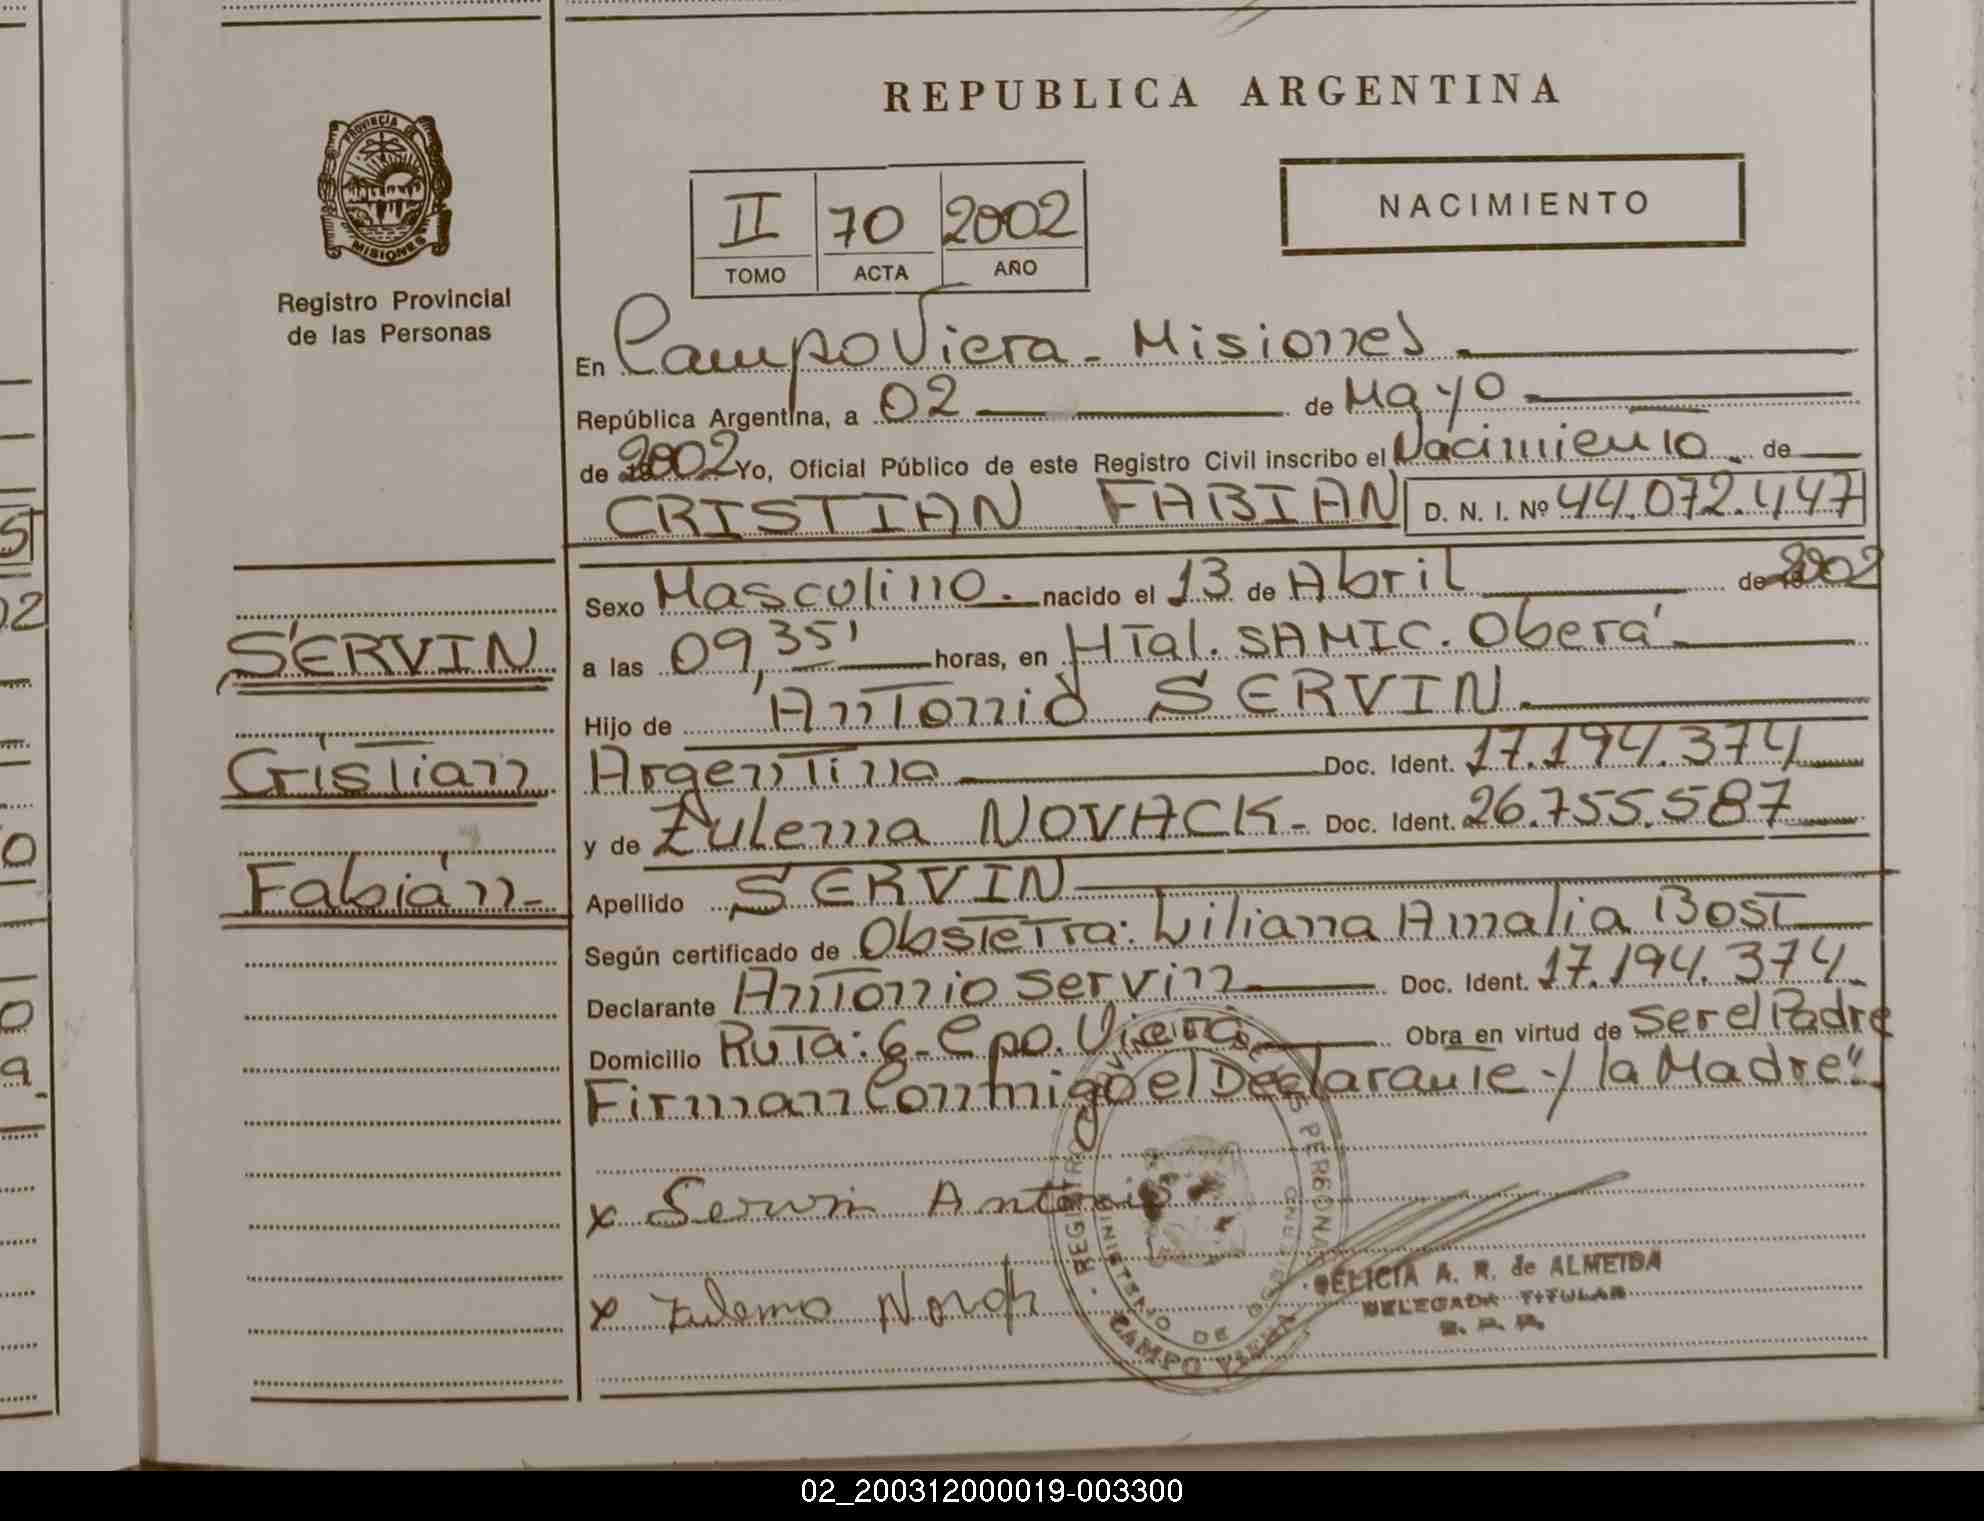 REPUBLICA ARGENTINA
PROVINCIA DE
MISIONES
Registro Provincial
de las Personas
II 70 2002
TOMO ACTA AÑO
NACIMIENTO
En Campo Viera - Misiones
República Argentina, a 02 de Mayo
de 2002 Yo, Oficial Público de este Registro Civil inscribo el Nacimiento de
CRISTIAN FABIAN D. N. I. Nº 44.072.447
Sexo Masculino. nacido el 13 de Abril de 2002
a las 09,35' horas, en HTal. SAMIC. Oberá
Hijo de Antonio SERVIN
Argentina Doc. Ident. 17.194.374
y de Zulema NOVACK - Doc. Ident. 26.755.587
Apellido SERVIN
Según certificado de Obstetra: Liliana Amalia Bost
Declarante Antonio Servin Doc. Ident. 17.194.374
Domicilio Ruta: 6 - Cpo. Viera Obra en virtud de ser el Padre
Firman Conmigo el Declarante y la Madre"
SERVIN
Cristian
Fabián -
x Servin Antonio
x Zulema
REGISTRO PERSONAS
MINISTERIO DE GOBIERNO
CAMPO VIERA
DELICIA A. R. de ALMEIDA
DELEGADA TITULAR
R. P. P.
02_200312000019-003300